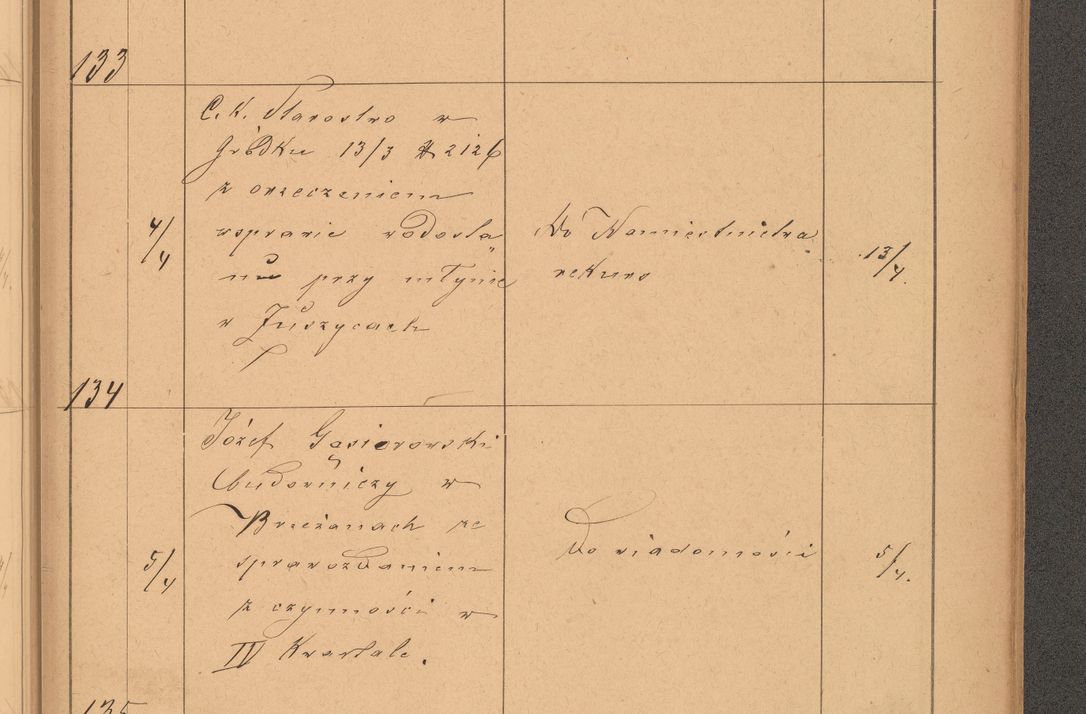 133
C. K. Starostwo w
Gródku 13/3 2126
z orzeczeniem
4/4
wsprawie wodosta„
nu przy młynie
w
Do Namiestnictwa
rekurs
13/4.
134
Józef Gąsiorowski
budowniczy w
Brzeżanach ze
5/4
sprawozdaniem
z czynności w
IV Kwartale.
Do wiadomości
5/4.
135